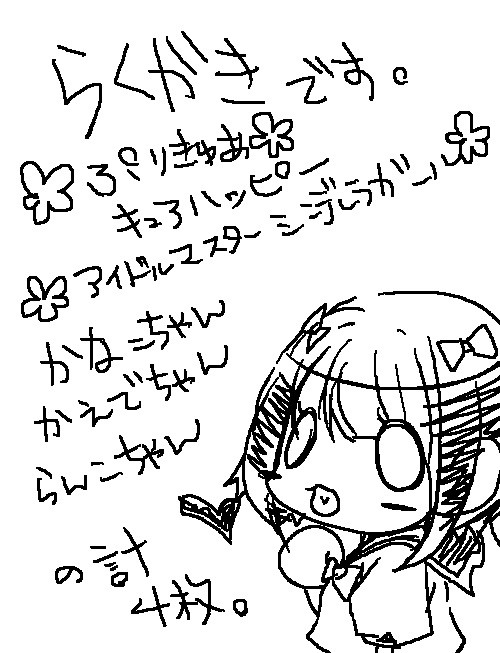 らくがきです。
ぷりきゅあ
キュアハッピー
アイドルマスターシンデレラガール
かなこちゃん
かえでちゃん
らんこちゃん
の計
4枚。